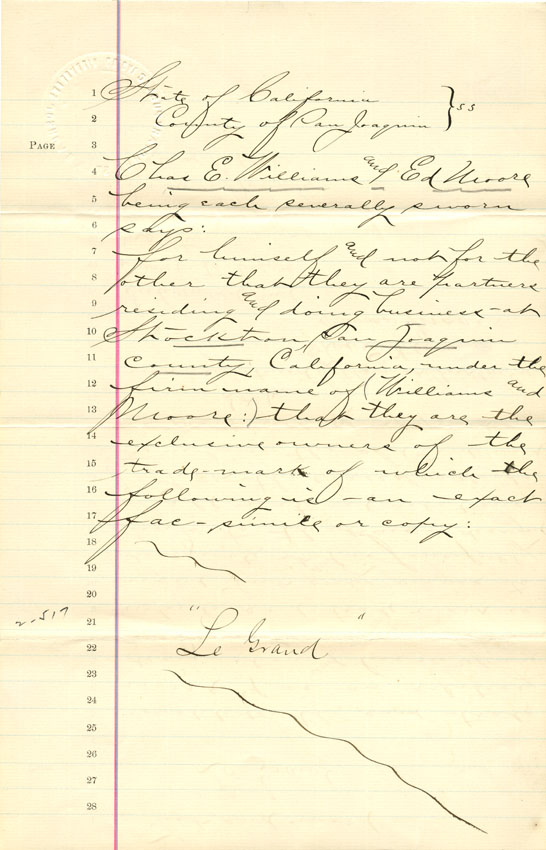 1 State of California } ss
2 County of San Joaquin
PAGE
3
4 Chas E. Williams and Ed Moore
5 being each severally sworn
6 says:
7 for himself and not for the
8 other that they are partners
9 residing and doing business at
10 Stockton San Joaquin
11 County, California, under the
12 firm name of (Williams and
13 Moore:) that they are the
14 exclusive owners of the
15 trade-mark of which the
16 following is an exact
17 fac-simile or copy:
18
19
20
2-517
21
22 "Le Grand"
23
24
25
26
27
28